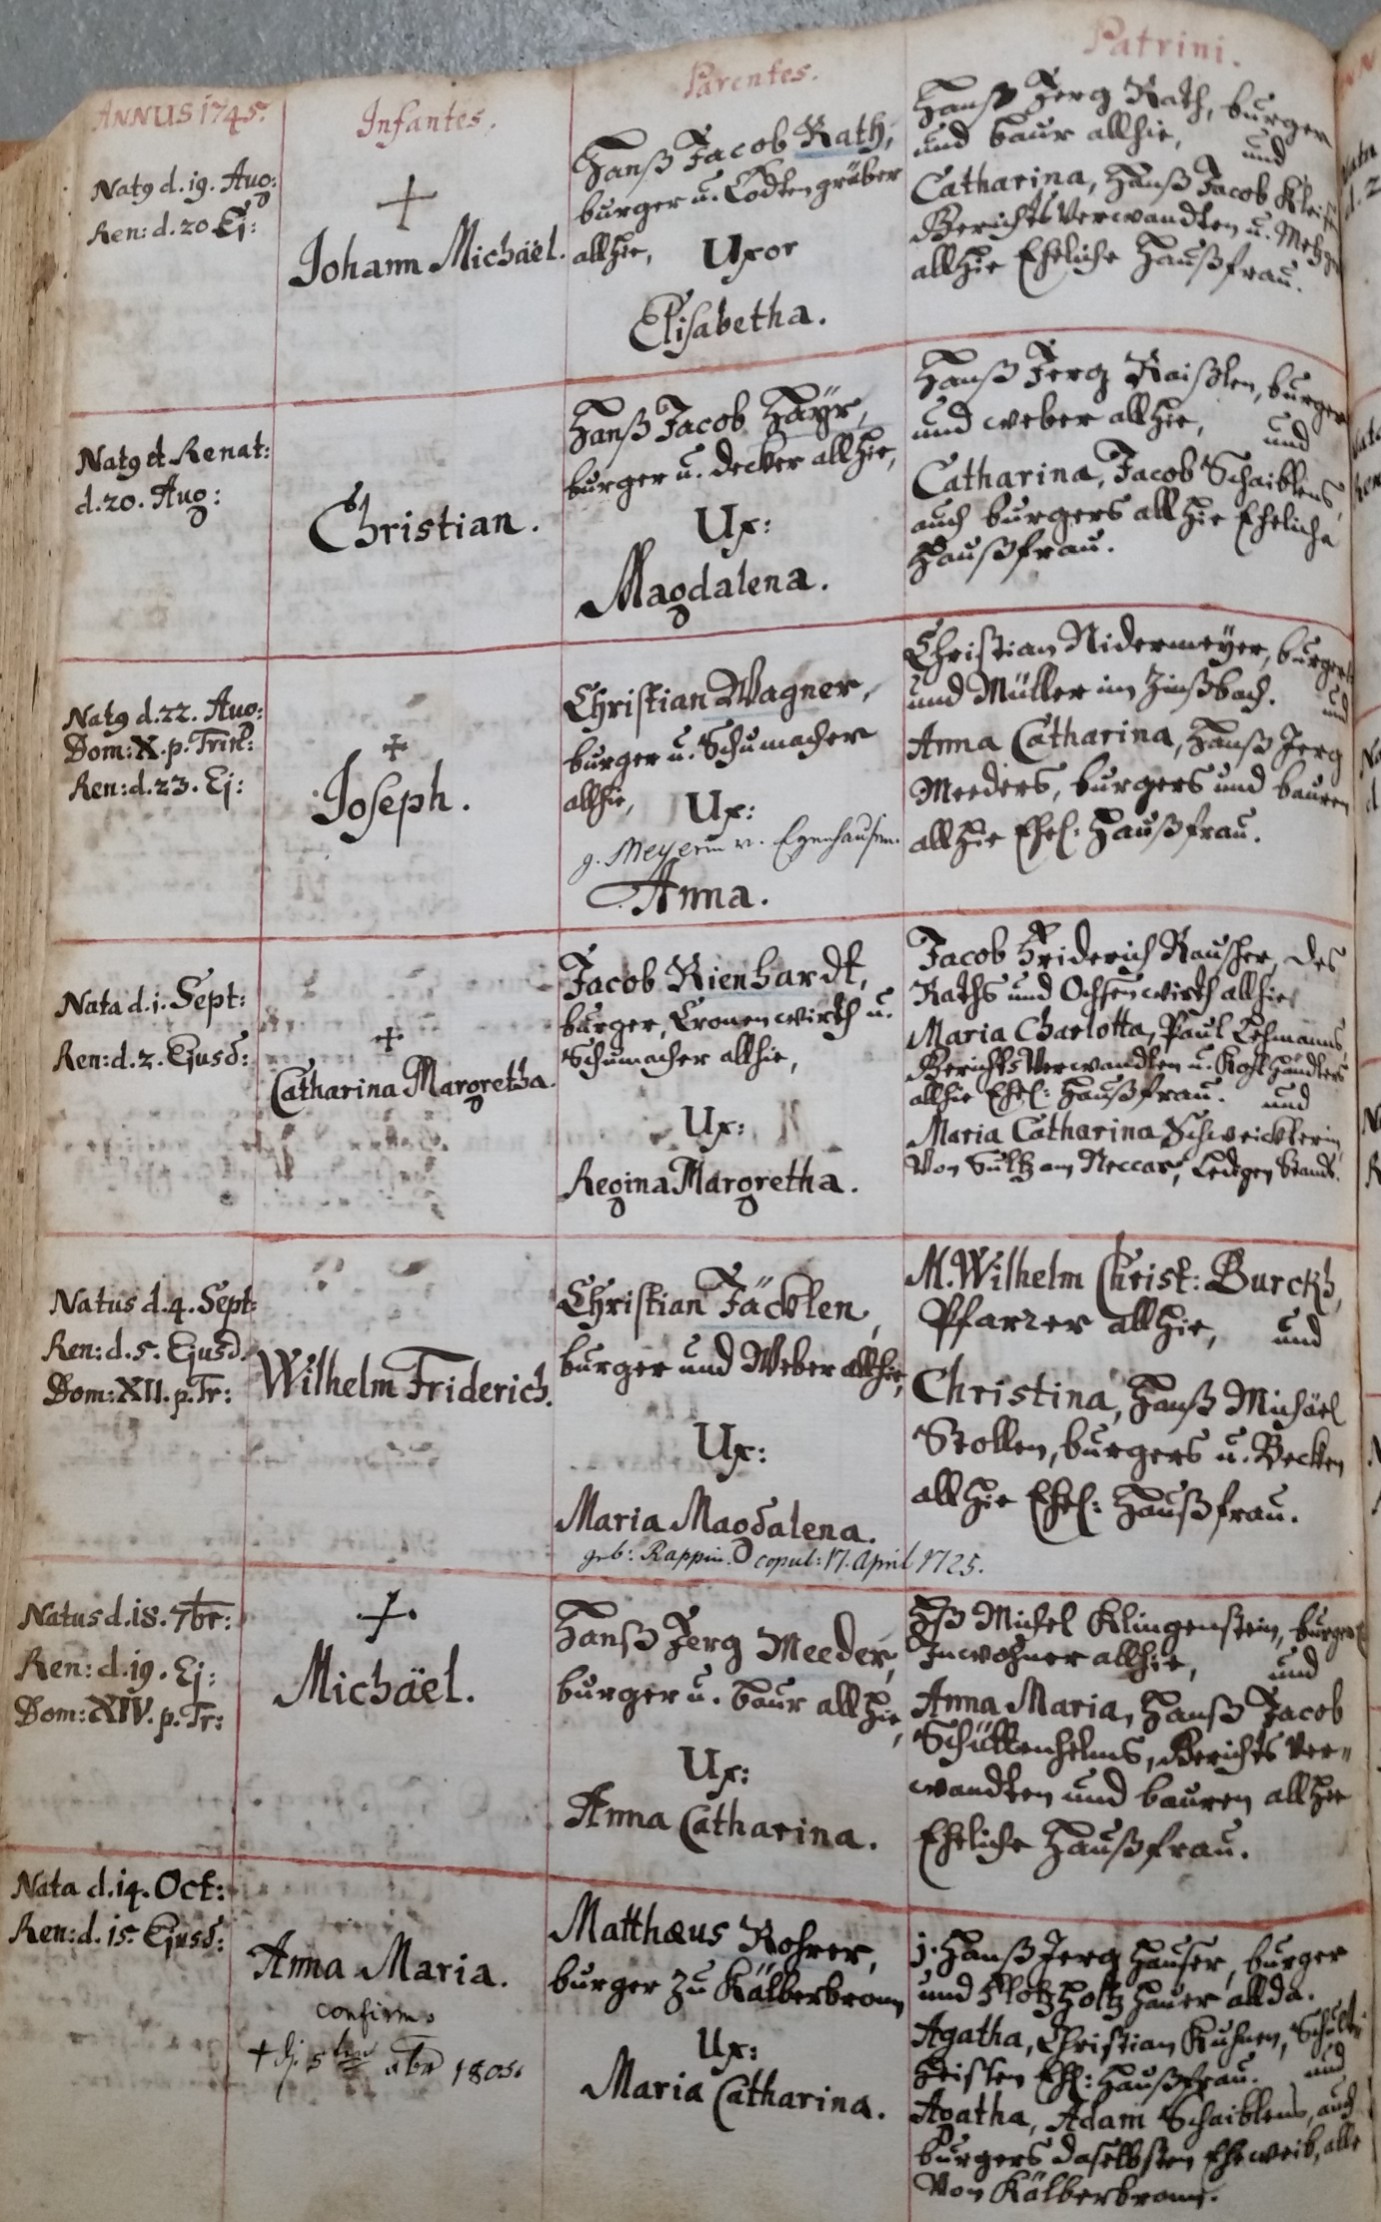 ANNUS 1745.
Infantes.
Parentes.
Patrini.
Nat9 d. 19. Aug:
Ren: d. 20 Ej:
+
Johann Michäel.
Hanß Jacob Rath,
burger u. Todtengräber
allhie,
Uxor
Elisabetha.
Hanß Jerg Rath, burger
und baur allhie, und
Catharina, Hanß Jacob
Gerichts Verwandten u.
allhie Eheliche Haußfrau.
Nat9 et Renat:
d. 20. Aug:
Christian.
Hanß Jacob Häyr,
burger u. decker allhie,
Ux:
Magdalena.
Hanß Jerg Raißlen, burger
und weber allhie, und
Catharina, Jacob Schaiblens,
auch burgers allhie Eheliche
Haußfrau.
Nat9 d. 22. Aug:
Dom: X. p. Trin:
Ren: d. 23. Ej:
+
Joseph.
Christian Wagner,
burger u. Schumacher
allhie,
Ux:
g. Meyerin v. Egenhausen.
Anna.
Christian Nidermeyer, burger
und Müller im Zinßbach. und
Anna Catharina, Hanß Jerg
Meeders, burgers und bauren
allhie Ehel: Haußfrau.
Nata d. 1. Sept:
Ren: d. 2. Ejusd:
+
Catharina Margretha.
Jacob Rienhardt,
burger, Cronenwirth u.
Schumacher allhie,
Ux:
Regina Margretha.
Jacob Friderich Rauscher, des
Raths und Ochsenwirth allhie,
Maria Charlotta, Paul Lehmanns,
Gerichts Verwandten u. händlers
allhie Ehel: Haußfrau. und
Maria Catharina Schweicklerin,
Von Sultz am Neccar, Ledigen Stands.
Natus d. 4. Sept:
Ren: d. 5. Ejusd.
Dom: XII. p. Tr:
Wilhelm Friderich.
Christian Jäcklen,
burger und Weber allhie,
Ux:
Maria Magdalena.
geb: Rappin. copul: 17. April 1725.
M. Wilhelm Christ: Burckh,
Pfarrer allhie, und
Christina, Hanß Michäel
Stollen, burgers u. Becken
allhie Ehel: Haußfrau.
Natus d. 18. 7br:
Ren: d. 19. Ej:
Dom: XIV. p. Tr:
+
Michäel.
Hanß Jerg Meeder,
burger u. baur allhie,
Ux:
Anna Catharina.
Hß Michel Klingenstein, burger
Innwohner allhie, und
Anna Maria, Hanß Jacob
Schüttenhelms, Gerichts Ver=
wandten und bauren allhie
Eheliche Haußfrau.
Nata d. 14. Oct:
Ren: d. 15. Ejusd:
Anna Maria.
confirm.
+ 5 1805.
Matthæus Rohrer,
burger zu Kälberbronn
Ux:
Maria Catharina.
j. Hanß Jerg Hauser, burger
und Klotzholtzhauer allda.
Agatha, Christian Kuhnen, Schult=
heisten Ehl: Haußfrau. und
Agatha, Adam Schaiblens, auch
burgers daselbsten Eheweib, alle
Von Kälberbronn.